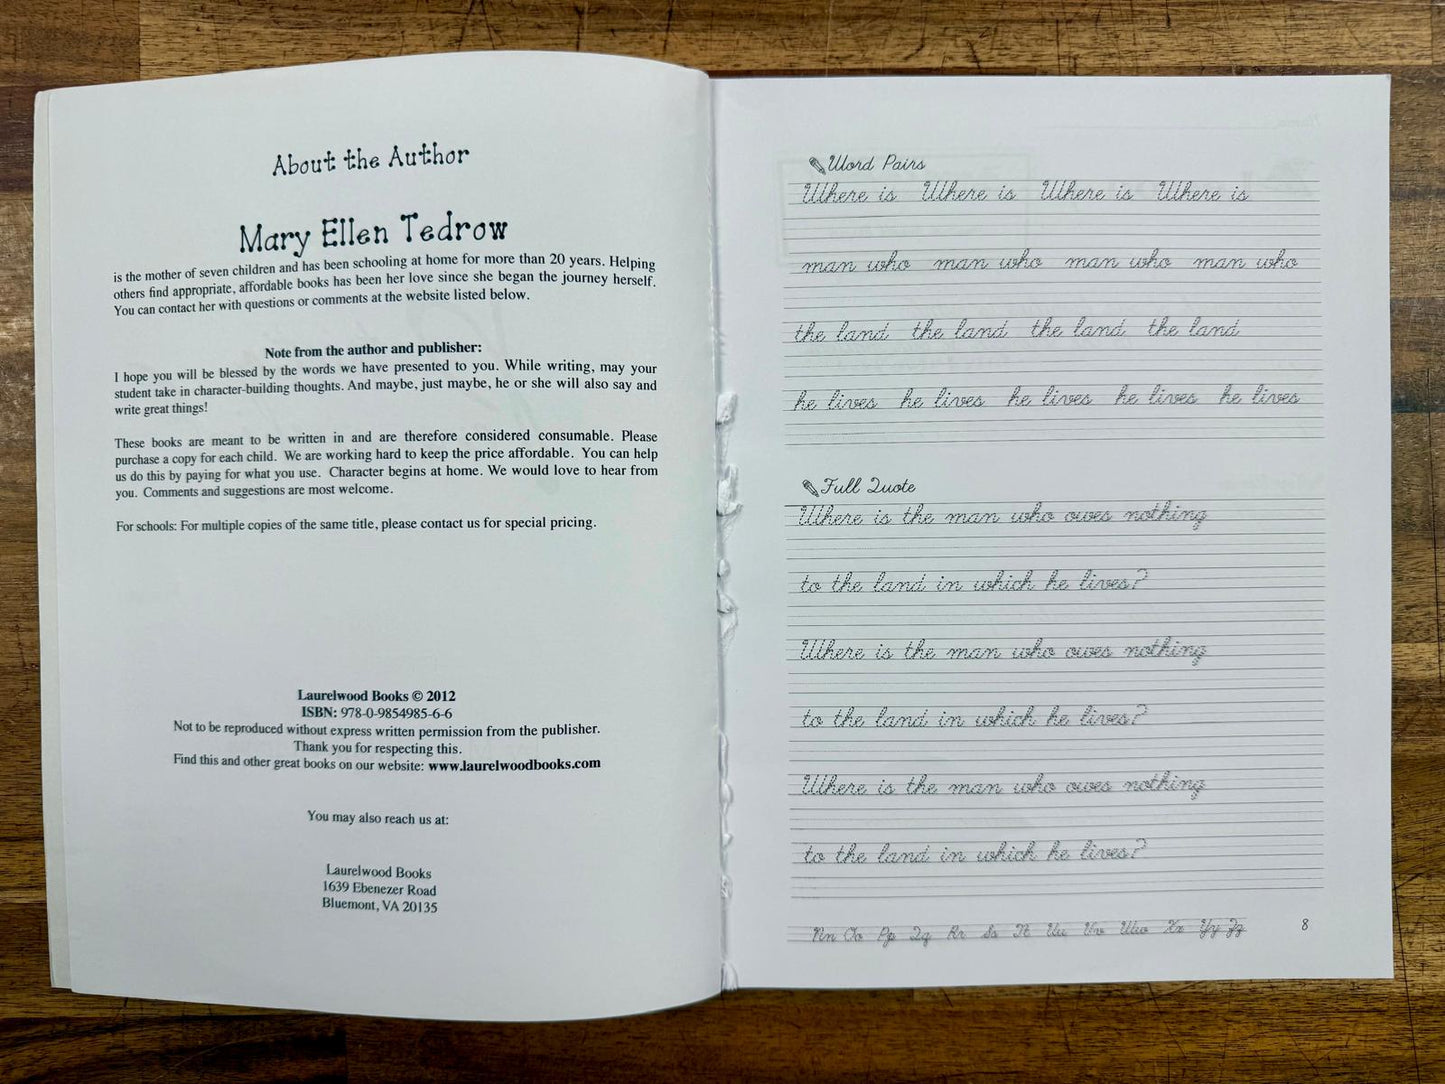 About the Author
Mary Ellen Tedrow
is the mother of seven children and has been schooling at home for more than 20 years. Helping
others find appropriate, affordable books has been her love since she began the journey herself.
You can contact her with questions or comments at the website listed below.
Note from the author and publisher:
I hope you will be blessed by the words we have presented to you. While writing, may your
student take in character-building thoughts. And maybe, just maybe, he or she will also say and
write great things!
These books are meant to be written in and are therefore considered consumable. Please
purchase a copy for each child. We are working hard to keep the price affordable. You can help
us do this by paying for what you use. Character begins at home. We would love to hear from
you. Comments and suggestions are most welcome.
For schools: For multiple copies of the same title, please contact us for special pricing.
Laurelwood Books © 2012
ISBN: 978-0-9854985-6-6
Not to be reproduced without express written permission from the publisher.
Thank you for respecting this.
Find this and other great books on our website: www.laurelwoodbooks.com
You may also reach us at:
Laurelwood Books
1639 Ebenezer Road
Bluemont, VA 20135
Word Pairs
Where is Where is Where is Where is
man who man who man who man who
the land the land the land the land
he lives he lives he lives he lives he lives
Full Quote
Where is the man who owes nothing
to the land in which he lives?
Where is the man who owes nothing
to the land in which he lives?
Where is the man who owes nothing
to the land in which he lives?
Nn Oo Pp Qq Rr Ss Tt Uu Vv Ww Xx Yy Zz
8